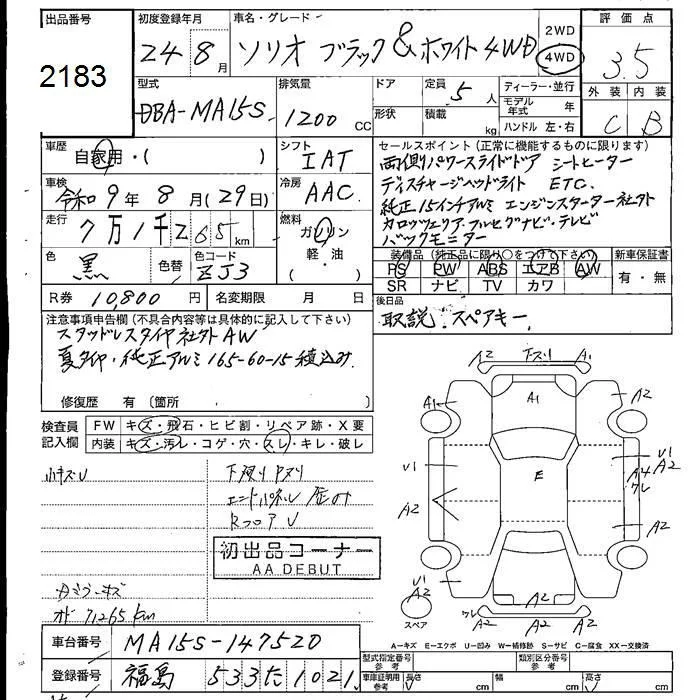 出品番号
2183
初度登録年月
24 8 月
車名・グレード
ソリオ ブラック&ホワイト 4WD
2WD
4WD
評価点
3.5
外装 内装
C B
型式
DBA-MA15S
排気量
1200 CC
ドア
定員
5 人
形状
積載
kg
ディーラー・並行
モデル年式 年
ハンドル 左・右
車歴
自家用・( )
シフト
IAT
セールスポイント(正常に機能するものに限ります)
両側パワースライドドア シートヒーター
ディスチャージヘッドライト ETC.
純正15インチアルミ エンジンスターター社外
カロッツェリア フルセグナビ・テレビ
バックモニター
車検
令和9年 8月(29日)
冷房
AAC
走行
7万1千265 km
燃料
ガソリン
軽・油
・( )
色
黒
色替
色コード
ZJ3
装備品(純正品に限り○をつけて下さい)
PS PW ABS エアB AW
SR ナビ TV カワ
新車保証書
有・無
R券 10,800 円
名変期限 月 日
後日品
取説・スペアキー
注意事項申告欄(不具合内容等は具体的に記入して下さい)
スタッドレスタイヤ社外AW
夏タイヤ・純正アルミ165-60-15積込み
修復歴 有(箇所 )
検査員
記入欄
FW キズ・飛石・ヒビ割・リペア跡・X要
内装 キズ・汚レ・コゲ・穴・スレ・キレ・破レ
小キズU
下廻りPヌリ
エンドパネル 歪み
RフロアU
初出品コーナー
AA DEBUT
ミラーキズ
71265km
A2 下スリ A1
A1
A1
A2
U1
E
U1
A2
A4
ワレ
A2
A2
U1
A2
A2
ワレ
A2
A2
A2
スペア
A-キズ E-エクボ U-凹み W-補修跡 S-サビ C-腐食 XX-交換済
車台番号 MA15S-147520
登録番号 福島 533 た 1021
型式指定番号
参考
類別区分番号
参考
車庫証明用
参考
長さ cm
幅 cm
高さ cm